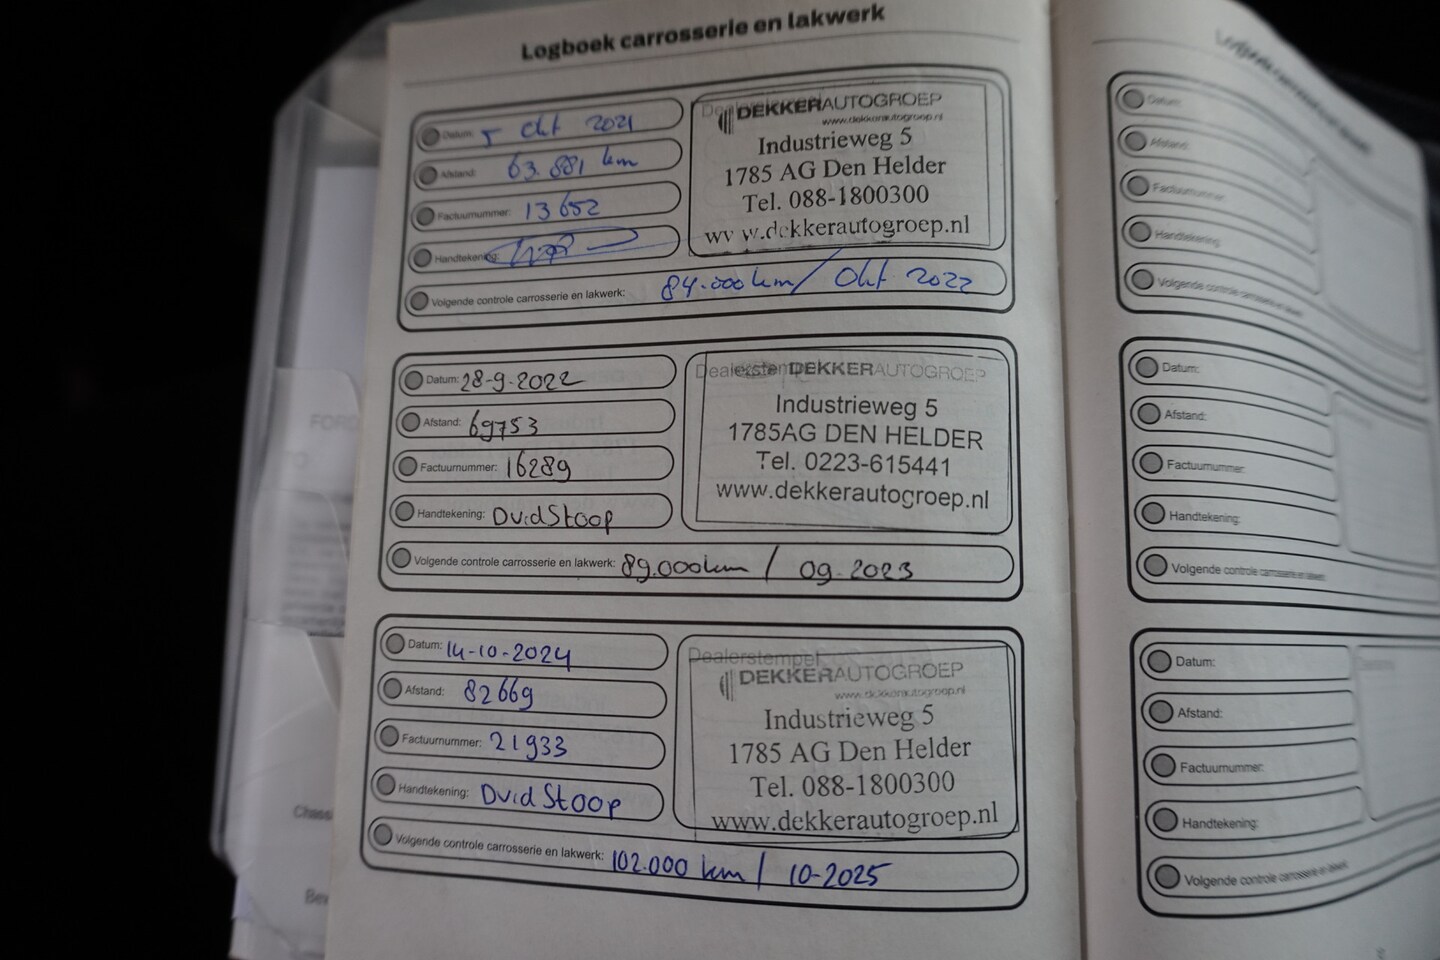 Logboek carrosserie en lakwerk
Datum: 5 Okt 2021
Afstand: 63.881 km
Factuurnummer: 13652
Handtekening:
DEKKERAUTOGROEP
www.dekkerautogroep.nl
Industrieweg 5
1785 AG Den Helder
Tel. 088-1800300
www.dekkerautogroep.nl
Volgende controle carrosserie en lakwerk: 84.000 km / Okt 2022
Datum: 28-9-2022
Afstand: 69753
Factuurnummer: 16289
Handtekening: DvidStoop
Dealerstempel DEKKERAUTOGROEP
Industrieweg 5
1785AG DEN HELDER
Tel. 0223-615441
www.dekkerautogroep.nl
Volgende controle carrosserie en lakwerk: 89.000km / 09-2023
Datum: 14-10-2024
Afstand: 82669
Factuurnummer: 21933
Handtekening: DvidStoop
Dealerstempel
DEKKERAUTOGROEP
www.dekkerautogroep.nl
Industrieweg 5
1785 AG Den Helder
Tel. 088-1800300
www.dekkerautogroep.nl
Volgende controle carrosserie en lakwerk: 102.000 km / 10-2025
Logboek carrosserie
Datum:
Afstand:
Factuurnummer:
Handtekening:
Volgende controle carrosserie en lakwerk:
Datum:
Afstand:
Factuurnummer:
Handtekening:
Volgende controle carrosserie en lakwerk:
Datum:
Afstand:
Factuurnummer:
Handtekening:
Volgende controle carrosserie en lakwerk:
FORD